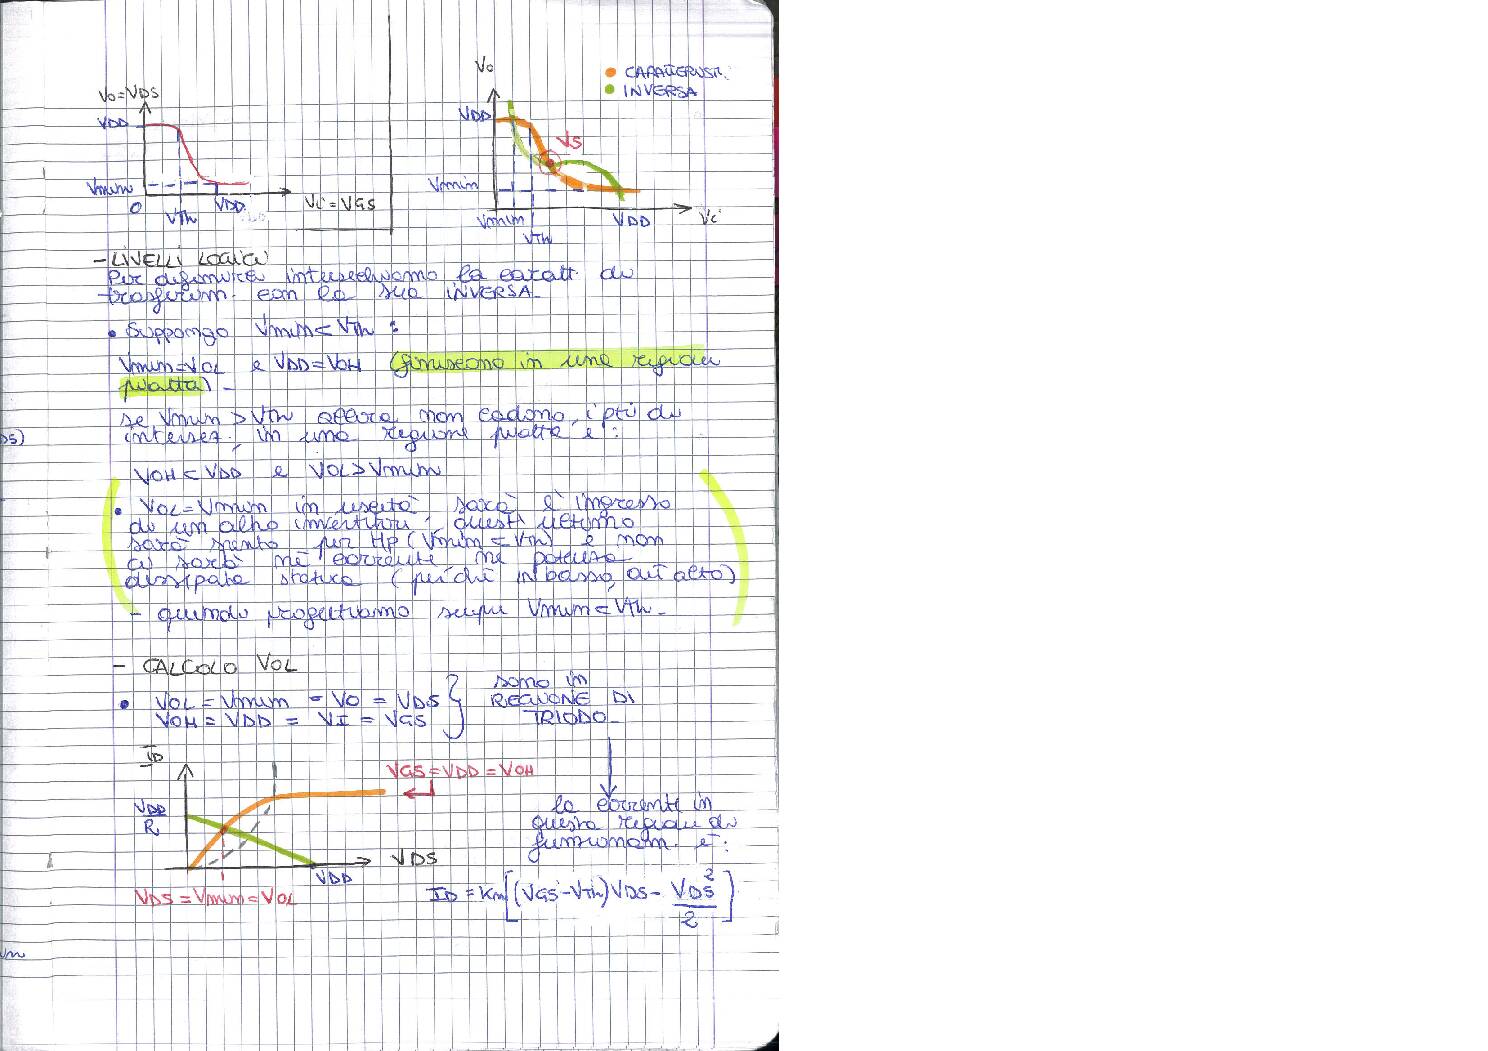 Vo=VDS
VDD
Vmin
0
VTh
VDD
Vi=VGS
Vo
CARATTERIST.
INVERSA
VDD
VS
Vmin
Vmin
VTh
VDD
Vi
- LIVELLI LOGICI
Per definirli intersechiamo la caratt. di
trasferim. con la sua INVERSA.
• Suppongo Vmin<VTh :
Vmin=VOL e VDD=VOH (finiscono in una regione
piatta).
se Vmin>VTh allora non cadono, i pti di
intersez., in una regione piatta e :
VOH<VDD e VOL>Vmin
• VOL=Vmin in uscita sarà l'ingresso
di un altro invertitore; quest'ultimo
sarà spento per HP (Vmin<VTh) e non
ci sarà nè corrente nè potenza
dissipata statica (perchè in basso, out alto)
- quando progettiamo sempre Vmin<VTh.
- CALCOLO VOL
• VOL=Vmin=Vo=VDS
VOH=VDD=VI=VGS
sono in
REGIONE DI
TRIODO.
ID
VGS=VDD=VOH
VDD
R
VDS
VDD
VDS=Vmin=VOL
la corrente in
questa regione di
funzionam. è:
ID=Kn[(VGS-VTh)VDS-VDS²/2]